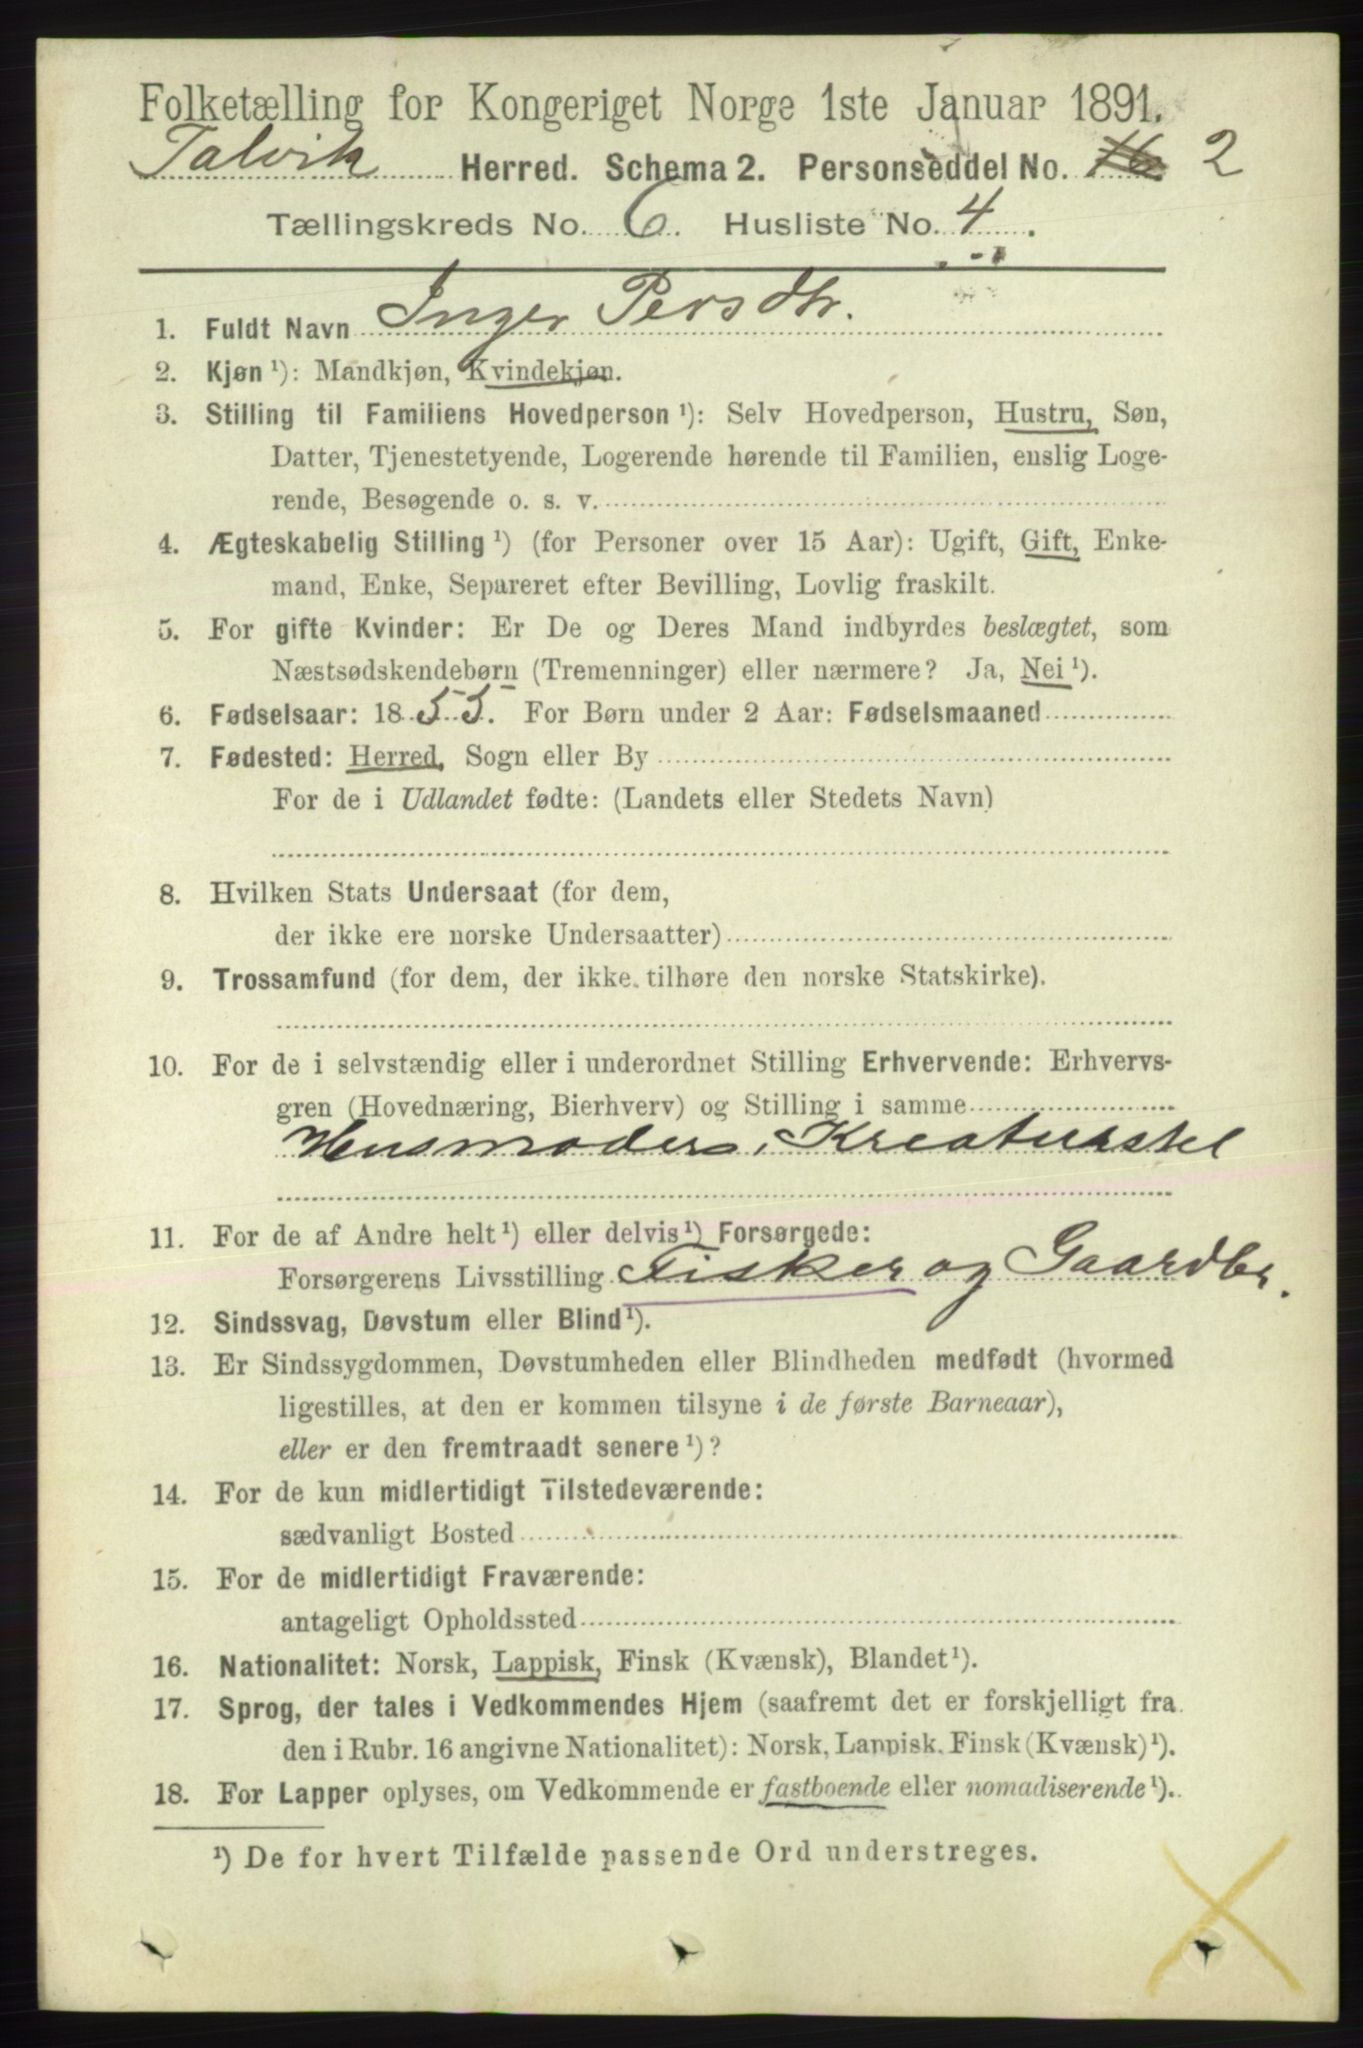 Folketælling for Kongeriget Norge 1ste Januar 1891.
Talvik Herred. Schema 2. Personseddel No. 2
Tællingskreds No. 6. Husliste No. 4.
1. Fuldt Navn Inger Persdtr.
2. Kjøn ¹): Mandkjøn, Kvindekjøn.
3. Stilling til Familiens Hovedperson ¹): Selv Hovedperson, Hustru, Søn,
Datter, Tjenestetyende, Logerende hørende til Familien, enslig Loge-
rende, Besøgende o. s. v.
4. Ægteskabelig Stilling ¹) (for Personer over 15 Aar): Ugift, Gift, Enke-
mand, Enke, Separeret efter Bevilling, Lovlig fraskilt.
5. For gifte Kvinder: Er De og Deres Mand indbyrdes beslægtet, som
Næstsødskendebørn (Tremenninger) eller nærmere? Ja, Nei ¹).
6. Fødselsaar: 1855. For Børn under 2 Aar: Fødselsmaaned
7. Fødested: Herred, Sogn eller By
For de i Udlandet fødte: (Landets eller Stedets Navn)
8. Hvilken Stats Undersaat (for dem,
der ikke ere norske Undersaatter)
9. Trossamfund (for dem, der ikke tilhøre den norske Statskirke).
10. For de i selvstændig eller i underordnet Stilling Erhvervende: Erhvervs-
gren (Hovednæring, Bierhverv) og Stilling i samme
Husmoder, Kreaturstel
11. For de af Andre helt ¹) eller delvis ¹) Forsørgede:
Forsørgerens Livsstilling Fisker og Gaardbr.
12. Sindssvag, Døvstum eller Blind ¹).
13. Er Sindssygdommen, Døvstumheden eller Blindheden medfødt (hvormed
ligestilles, at den er kommen tilsyne i de første Barneaar),
eller er den fremtraadt senere ¹)?
14. For de kun midlertidigt Tilstedeværende:
sædvanligt Bosted
15. For de midlertidigt Fraværende:
antageligt Opholdssted
16. Nationalitet: Norsk, Lappisk, Finsk (Kvænsk), Blandet ¹).
17. Sprog, der tales i Vedkommendes Hjem (saafremt det er forskjelligt fra
den i Rubr. 16 angivne Nationalitet): Norsk, Lappisk, Finsk (Kvænsk) ¹).
18. For Lapper oplyses, om Vedkommende er fastboende eller nomadiserende ¹).
¹) De for hvert Tilfælde passende Ord understreges.